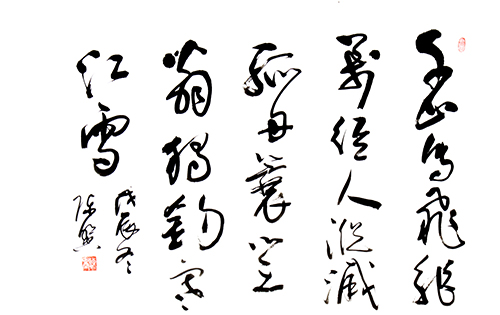 千山鳥飛絕
萬徑人蹤滅
孤舟蓑笠
翁獨釣寒
江雪
戊辰冬